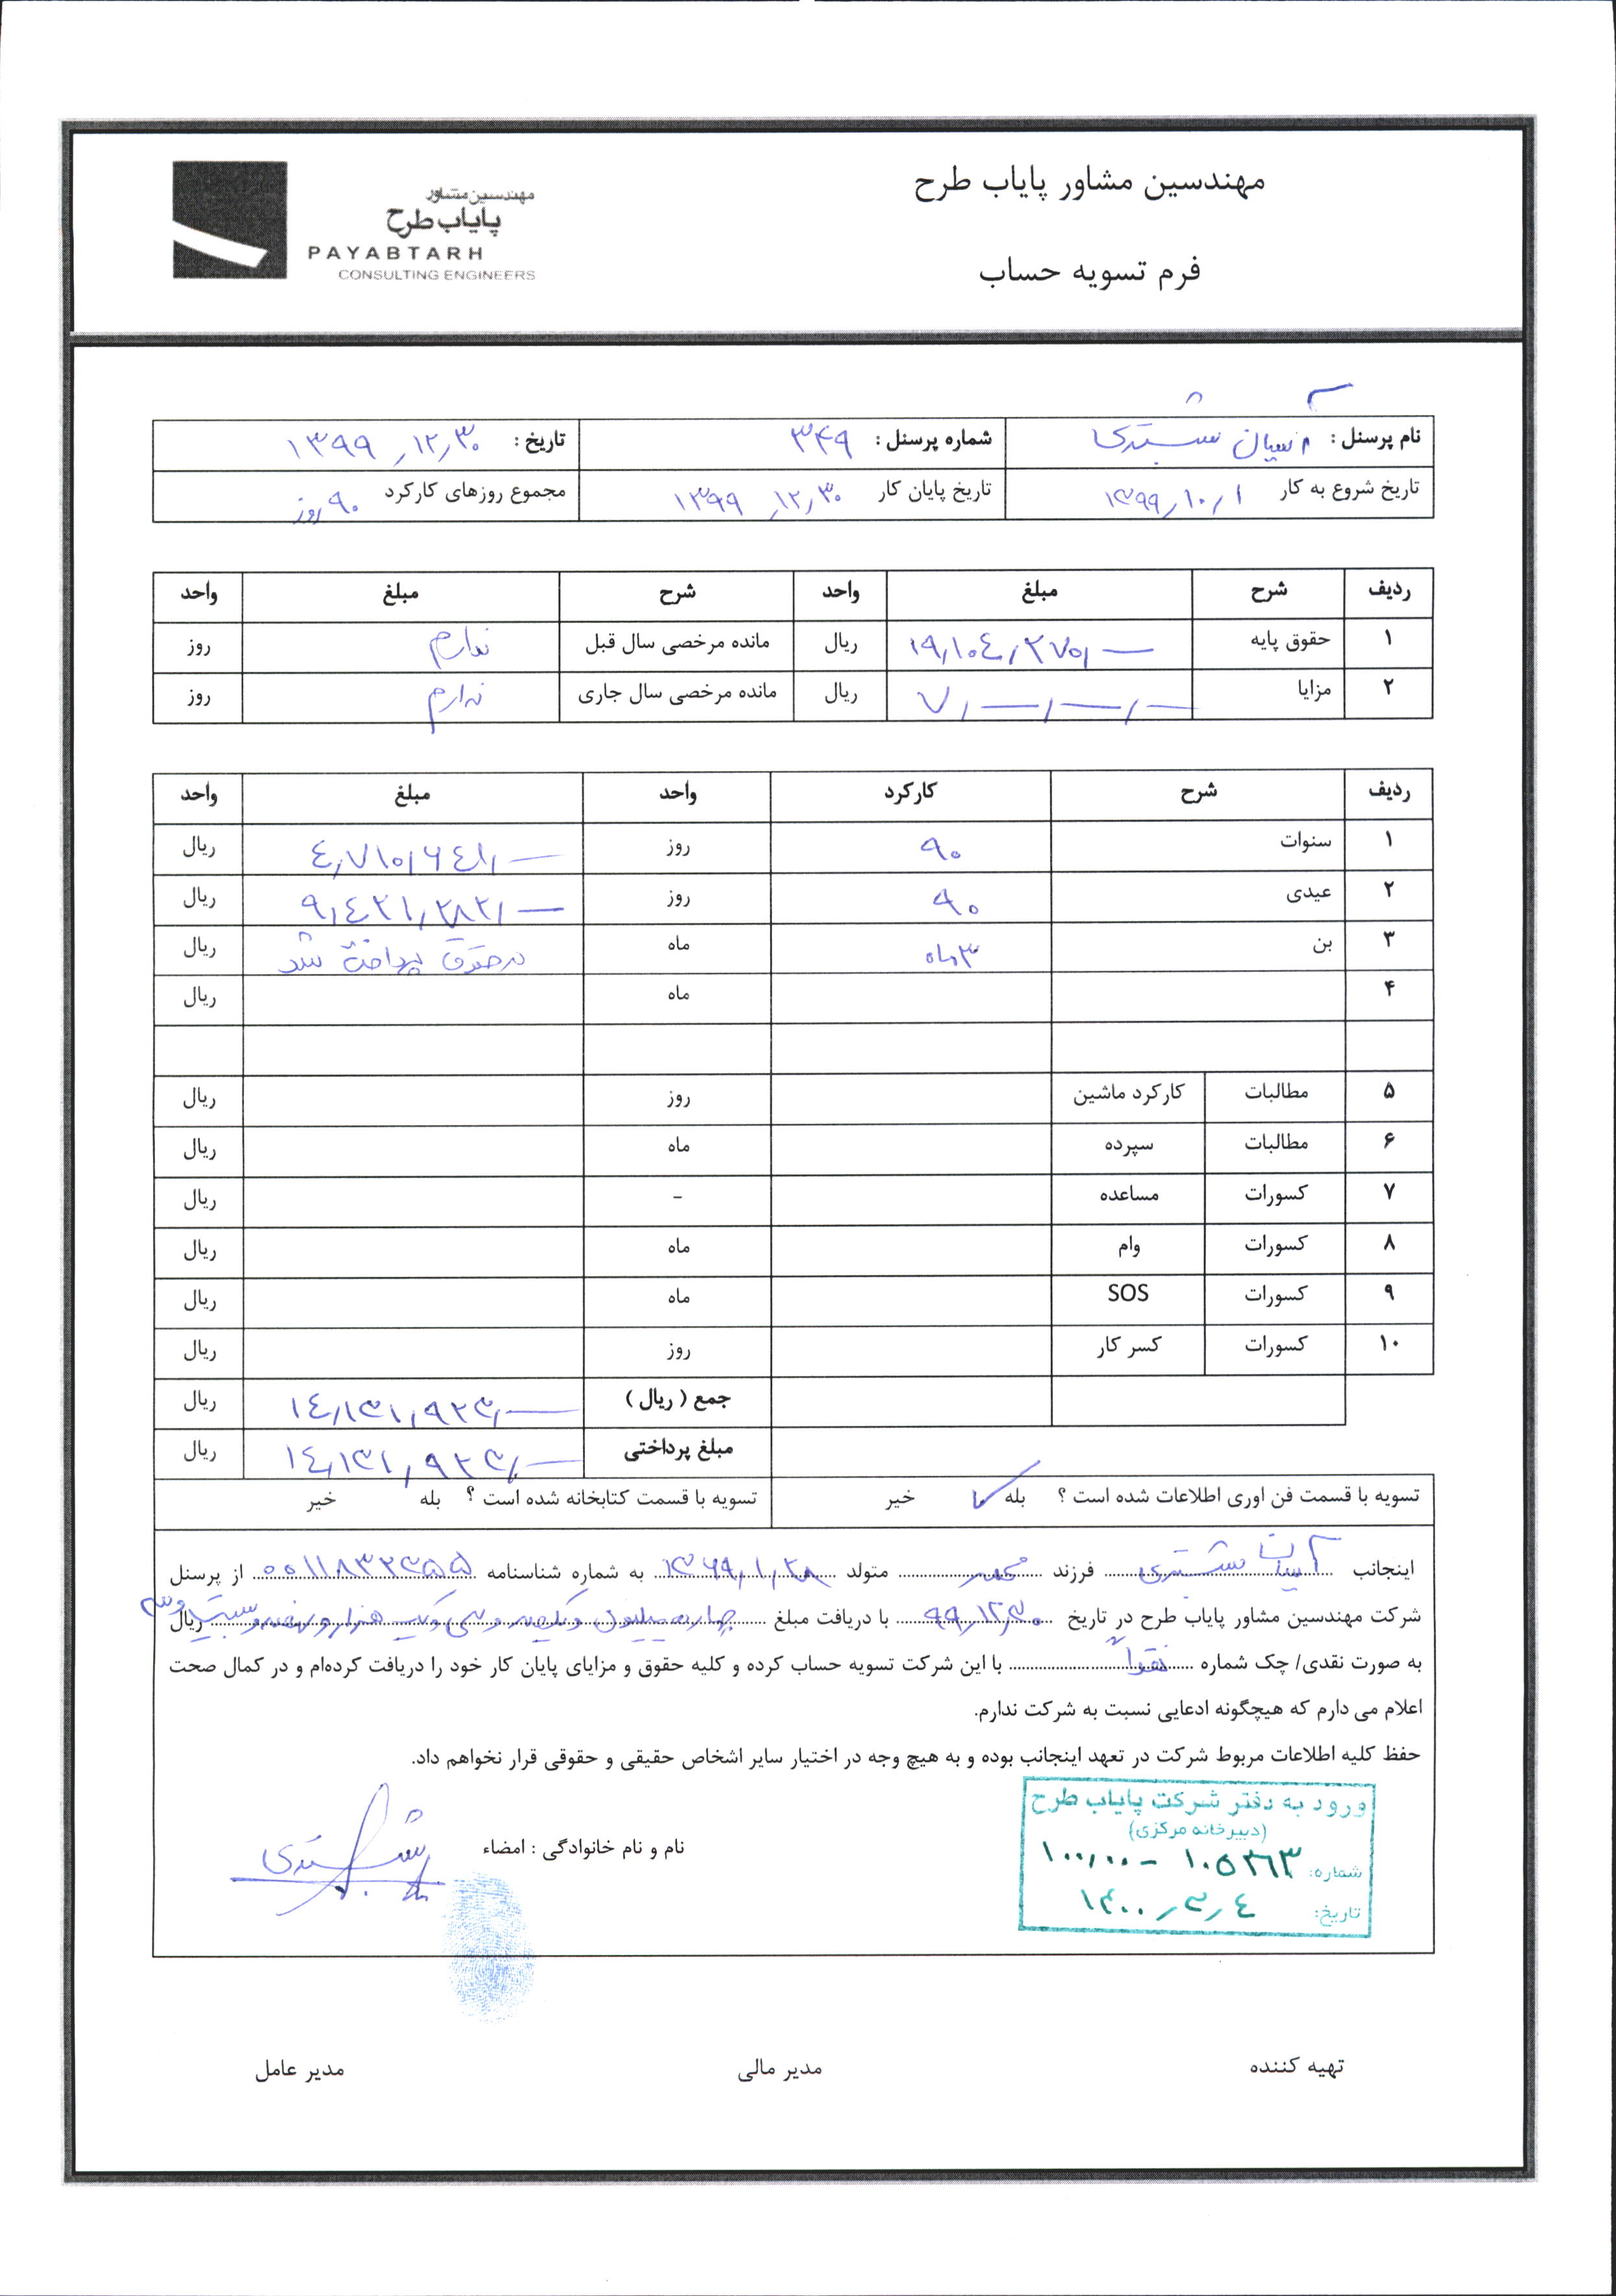 مهندسین مشاور پایاب طرح
مهندسین مشاور
پایاب طرح
PAYABTARH
CONSULTING ENGINEERS
فرم تسویه حساب
نام پرسنل : شبستری شماره پرسنل : ۳۴۹ تاریخ : ۱۳۹۹/۱۲/۳۰
تاریخ شروع به کار ۱۳۹۹/۱۰/۱ تاریخ پایان کار ۱۳۹۹/۱۲/۳۰ مجموع روزهای کارکرد ۹۰ روز
ردیف شرح مبلغ واحد شرح مبلغ واحد
۱ حقوق پایه ۱۹,۱۰۴,۲۷۵,— ریال مانده مرخصی سال قبل ندارم روز
۲ مزایا ۷,—,—,— ریال مانده مرخصی سال جاری ندارم روز
ردیف شرح کارکرد واحد مبلغ واحد
۱ سنوات ۹۰ روز ۴,۷۱۰,۶۴۱,— ریال
۲ عیدی ۹۰ روز ۹,۴۲۱,۲۸۲,— ریال
۳ بن ۳ ماه ماه در حقوق پرداخت شد ریال
۴ ماه ریال
۵ مطالبات کارکرد ماشین روز ریال
۶ مطالبات سپرده ماه ریال
۷ کسورات مساعده - ریال
۸ کسورات وام ماه ریال
۹ کسورات SOS ماه ریال
۱۰ کسورات کسر کار روز ریال
جمع ( ریال ) ۱۴,۱۳۱,۹۲۳,— ریال
مبلغ پرداختی ۱۴,۱۳۱,۹۲۳,— ریال
تسویه با قسمت فن اوری اطلاعات شده است ؟ بله ✓ خیر تسویه با قسمت کتابخانه شده است ؟ بله خیر
اینجانب شبستری فرزند محمد متولد ۱۳۶۹/۱/۲۸ به شماره شناسنامه ۰۰۱۱۸۳۲۳۵۵ از پرسنل
شرکت مهندسین مشاور پایاب طرح در تاریخ ۹۹/۱۲/۳۰ با دریافت مبلغ چهارده میلیون و یکصد و سی و یک هزار و نهصد و بیست و سه ریال
به صورت نقدی/ چک شماره نقداً با این شرکت تسویه حساب کرده و کلیه حقوق و مزایای پایان کار خود را دریافت کرده‌ام و در کمال صحت
اعلام می دارم که هیچگونه ادعایی نسبت به شرکت ندارم.
حفظ کلیه اطلاعات مربوط شرکت در تعهد اینجانب بوده و به هیچ وجه در اختیار سایر اشخاص حقیقی و حقوقی قرار نخواهم داد.
ورود به دفتر شرکت پایاب طرح
(دبیرخانه مرکزی)
شماره: ۱۰۰/۰۰ - ۱۰۵۲۶۳
تاریخ: ۱۴۰۰/۳/۴
نام و نام خانوادگی : امضاء شبستری
تهیه کننده مدیر مالی مدیر عامل